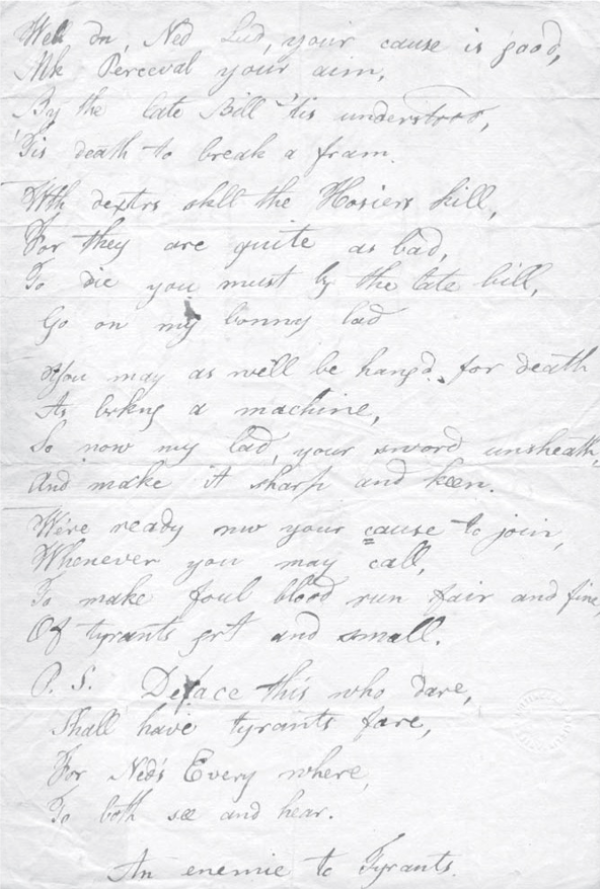 Well dn, Ned Lud, your cause is good,
Mk Perceval your aim,
By the late Bill 'tis understood,
'Tis death to break a fram.
Wth dextrs skll the Hosiers kill,
For they are quite as bad,
To die you must by the late bill,
Go on my bonny lad
You may as well be hangd for death
As brkng a machine,
So now my lad, your sword unsheath,
And make it sharp and keen.
We're ready nw your cause to join,
Whenever you may call,
To make foul blood run fair and fine,
Of tyrants grt and small.
P. S. Deface this who dare,
Shall have tyrants fare,
For Ned's Every where,
To both see and hear.
An enemie to Tyrants.